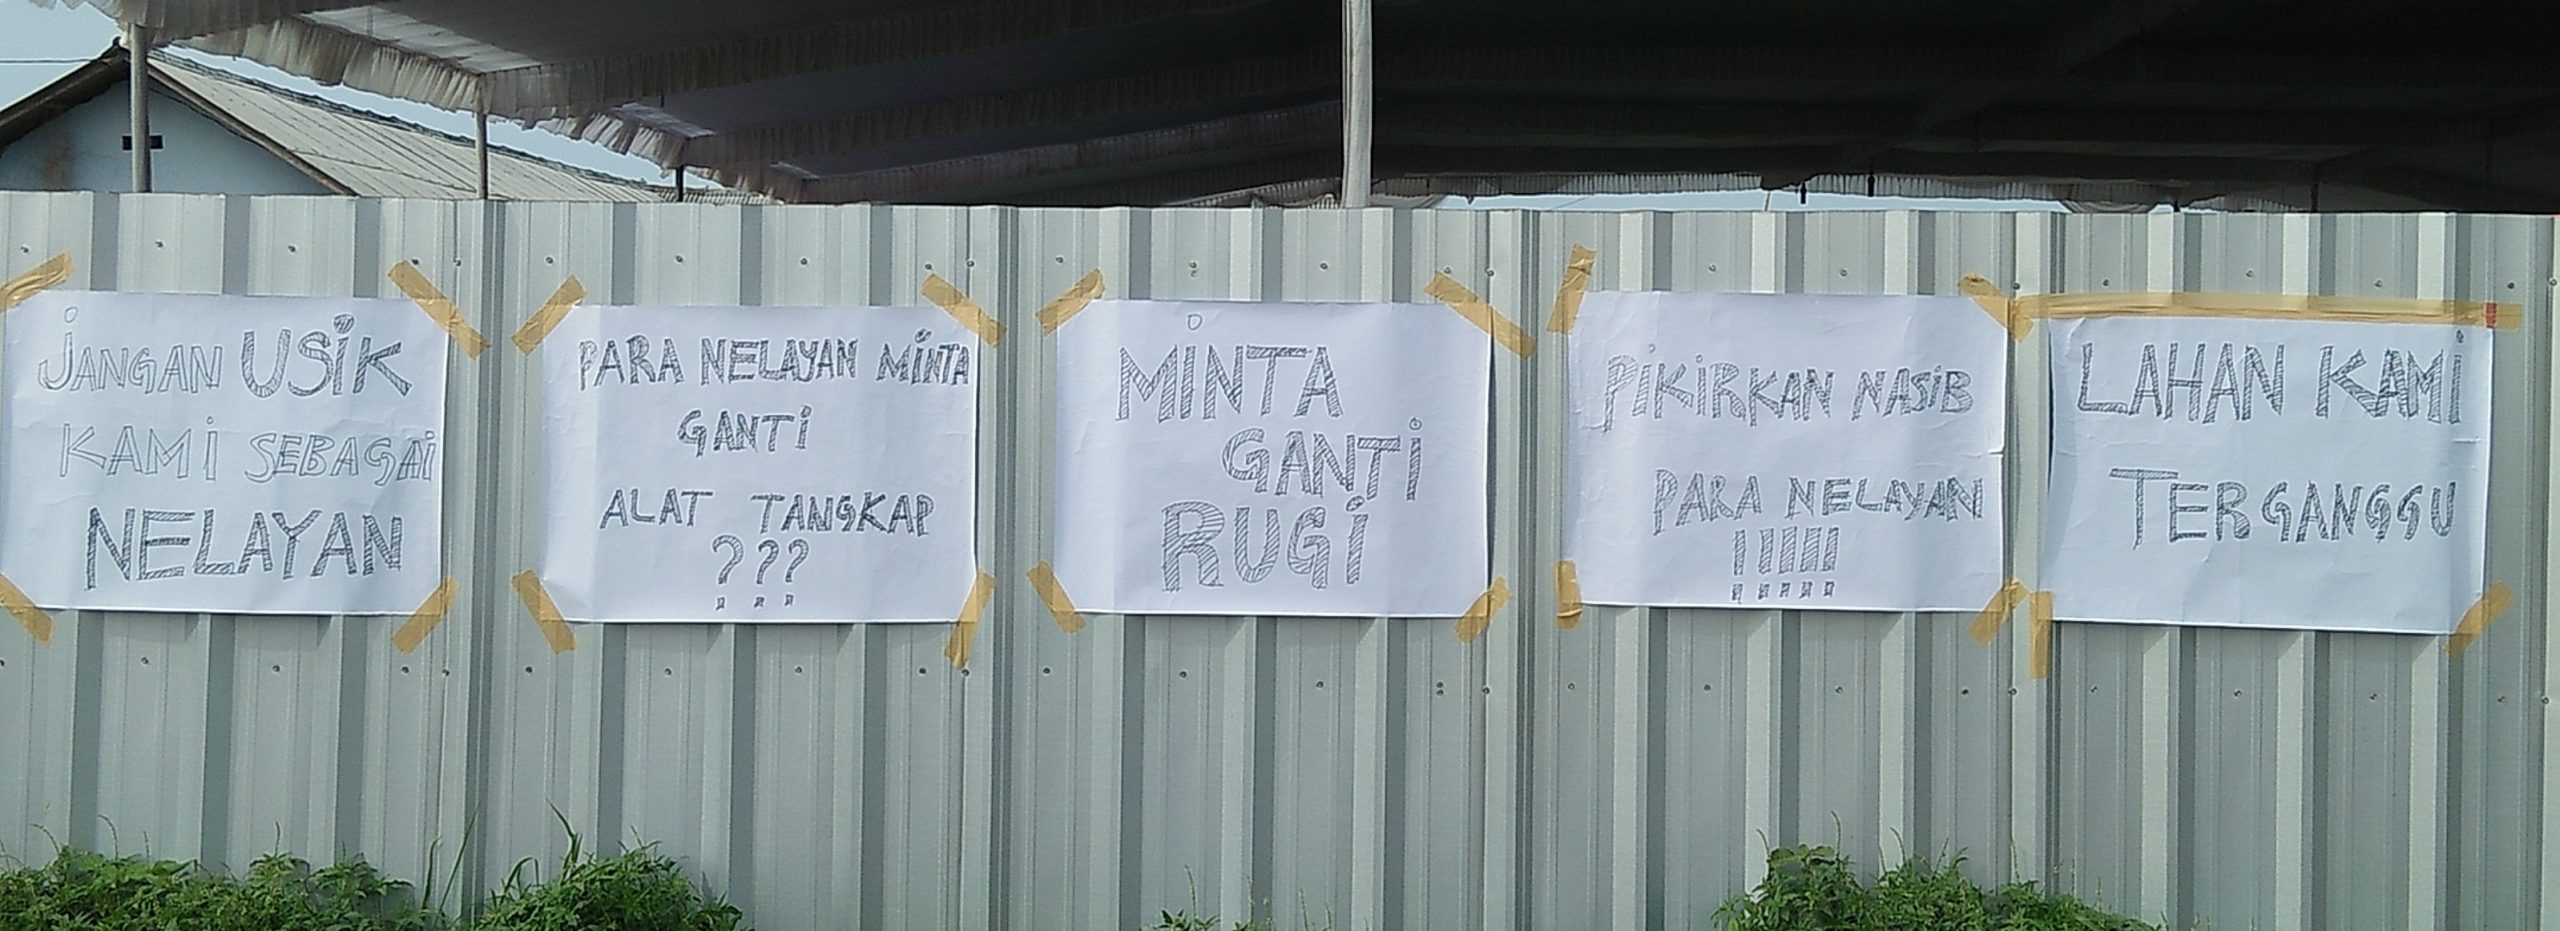 JANGAN USIK
KAMI SEBAGAI
NELAYAN
PARA NELAYAN MINTA
GANTI
ALAT TANGKAP
???
MINTA
GANTI
RUGI
PIKIRKAN NASIB
PARA NELAYAN
!!!!!
LAHAN KAMI
TERGANGGU